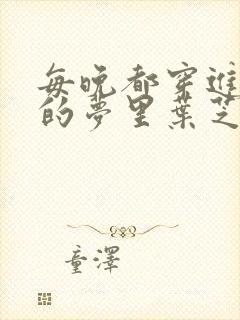 每晚都穿進
的夢里葉芝
童澤